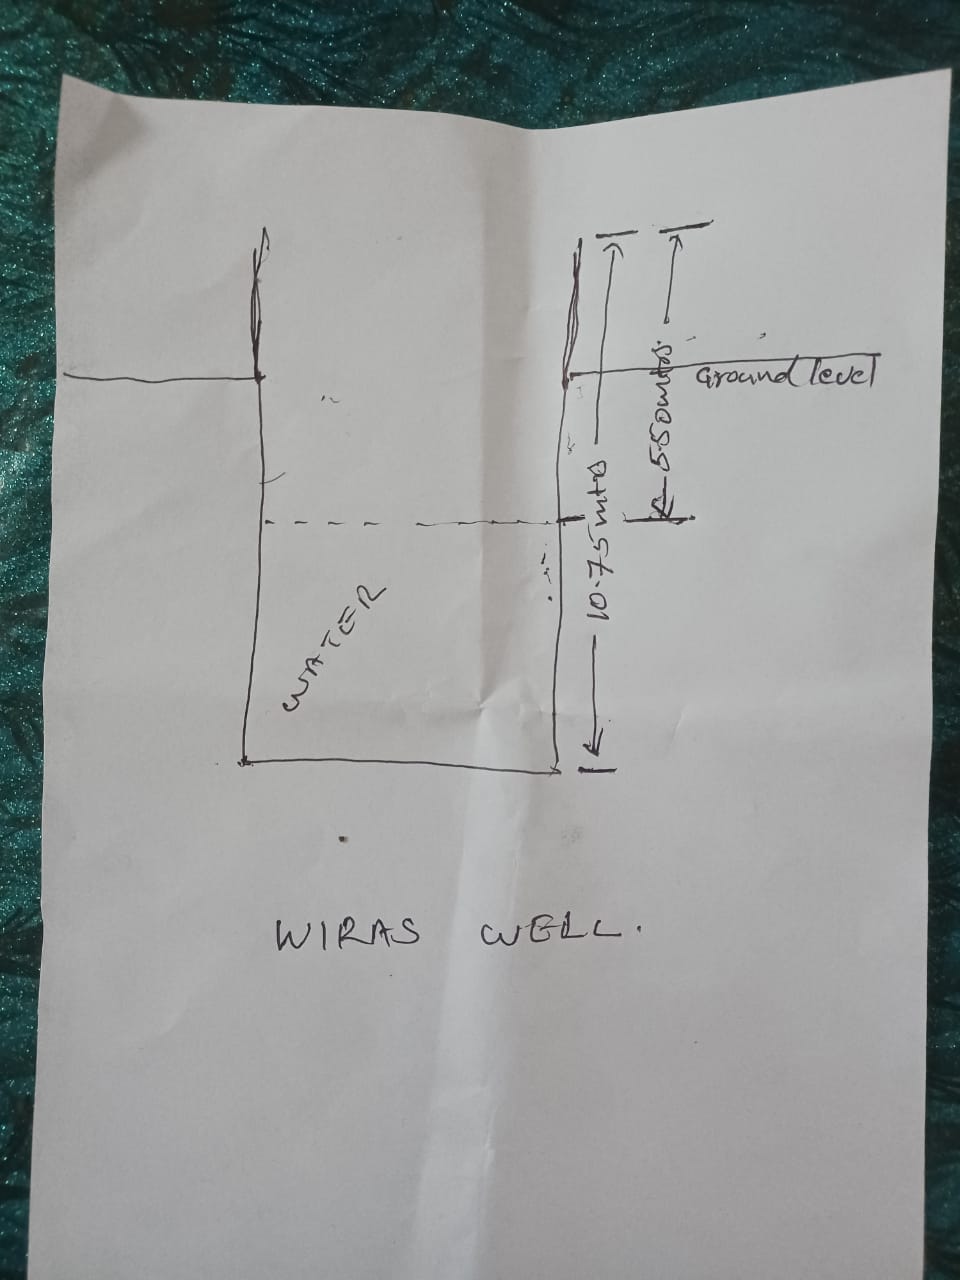 Ground level
5.50 mts
10.75 mts
WATER
WIRAS WELL.